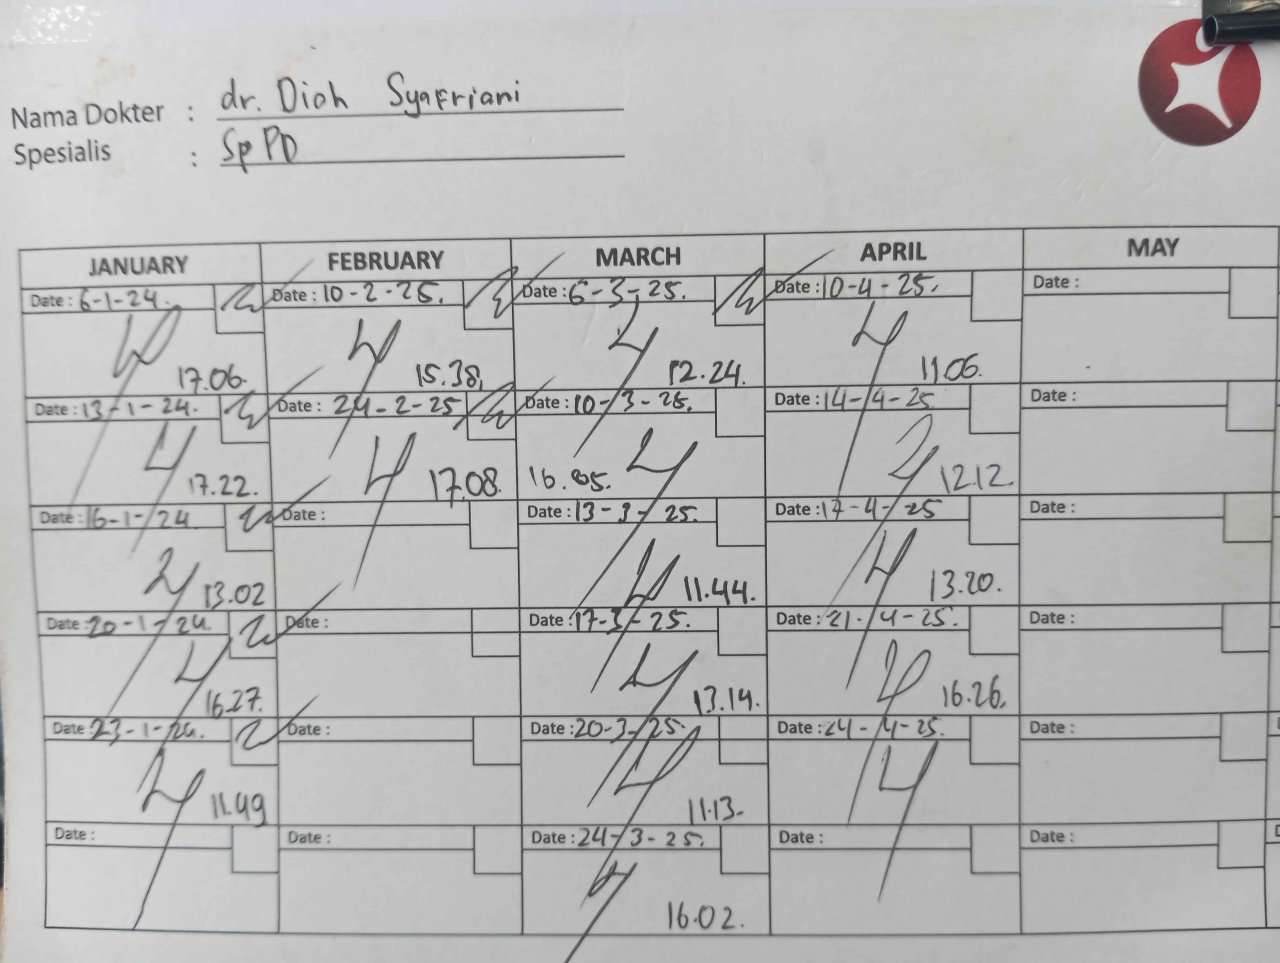 Nama Dokter : dr. Diah Syafriani
Spesialis : SpPD
JANUARY FEBRUARY MARCH APRIL MAY
Date : 6-1-24. Date : 10-2-25. Date : 6-3-25. Date : 10-4-25. Date :
17.06. 15.38. 12.24. 11.06.
Date : 13-1-24. Date : 24-2-25 Date : 10-3-25. Date : 14-4-25 Date :
17.22. 17.08. 16.05. 12.12.
Date : 16-1-24 Date : Date : 13-3-25. Date : 17-4-25 Date :
13.02 11.44. 13.20.
Date : 20-1-24. Date : Date : 17-3-25. Date : 21-4-25. Date :
16.27. 13.14. 16.26.
Date : 23-1-24. Date : Date : 20-3-25. Date : 24-4-25. Date :
11.49 11.13.
Date : Date : Date : 24-3-25. Date : Date :
16.02.